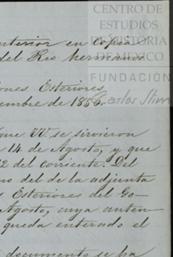 CENTRO DE
ESTUDIOS
DE HISTORIA
DE MEXICO
FUNDACIÓN
Carlos Slim
anterior en Copia
del Rio hermanos
ones Esteriores
iembre de 1886.
que VV. se sirvieron
14 de Agosto, y que
2 del corriente. Del
no del de la adjunta
s Esteriores del Go
Agosto, cuya auten
queda enterado el
documento se ha